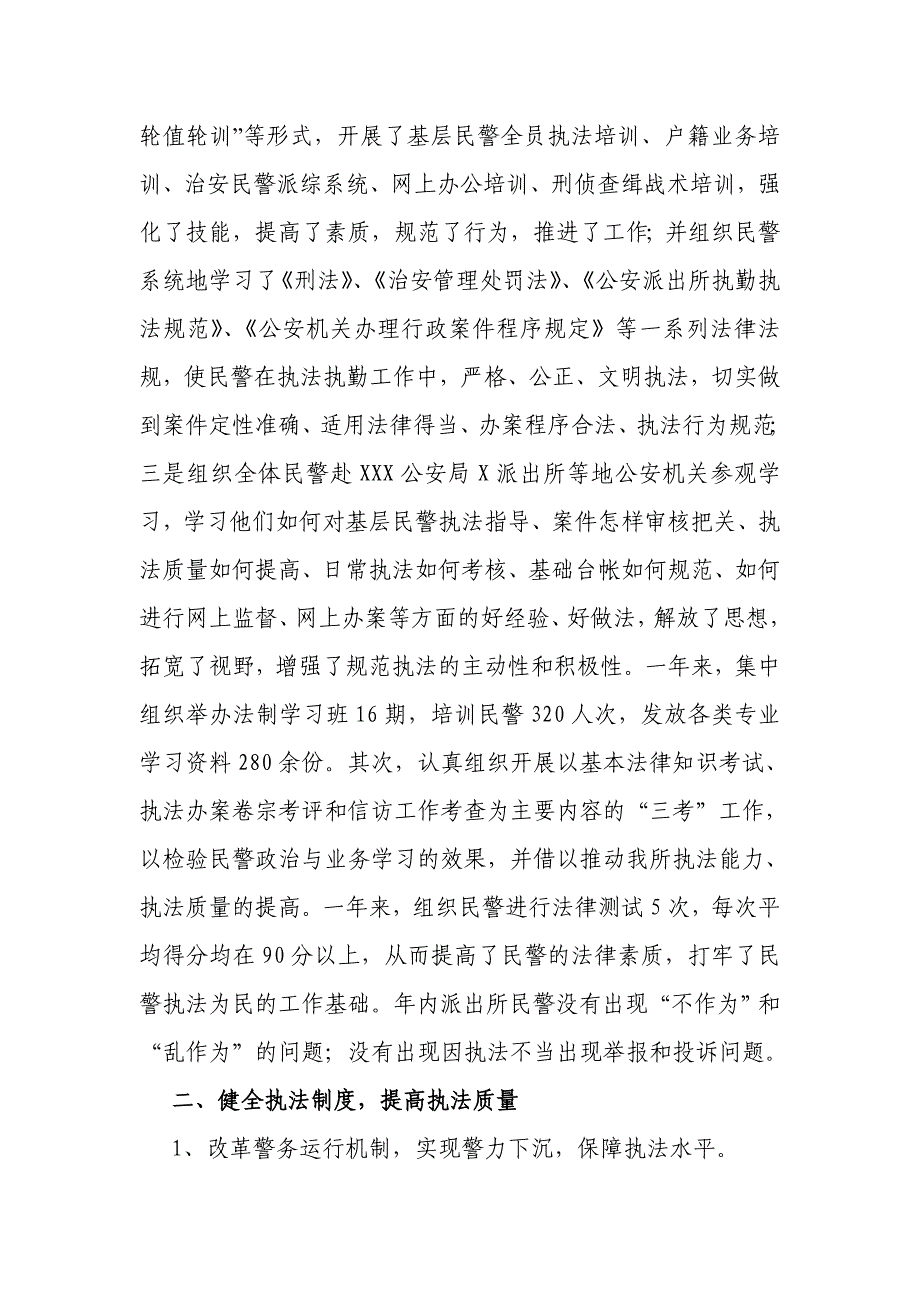 轮值轮训”等形式，开展了基层民警全员执法培训、户籍业务培
训、治安民警派综系统、网上办公培训、刑侦查缉战术培训，强
化了技能，提高了素质，规范了行为，推进了工作；并组织民警
系统地学习了《刑法》、《治安管理处罚法》、《公安派出所执勤执
法规范》、《公安机关办理行政案件程序规定》等一系列法律法
规，使民警在执法执勤工作中，严格、公正、文明执法，切实做
到案件定性准确、适用法律得当、办案程序合法、执法行为规范；
三是组织全体民警赴 XXX 公安局 X 派出所等地公安机关参观学
习，学习他们如何对基层民警执法指导、案件怎样审核把关、执
法质量如何提高、日常执法如何考核、基础台帐如何规范、如何
进行网上监督、网上办案等方面的好经验、好做法，解放了思想，
拓宽了视野，增强了规范执法的主动性和积极性。一年来，集中
组织举办法制学习班 16 期，培训民警 320 人次，发放各类专业
学习资料 280 余份。其次，认真组织开展以基本法律知识考试、
执法办案卷宗考评和信访工作考查为主要内容的“三考”工作，
以检验民警政治与业务学习的效果，并借以推动我所执法能力、
执法质量的提高。一年来，组织民警进行法律测试 5 次，每次平
均得分均在 90 分以上，从而提高了民警的法律素质，打牢了民
警执法为民的工作基础。年内派出所民警没有出现“不作为”和
“乱作为”的问题；没有出现因执法不当出现举报和投诉问题。
二、健全执法制度，提高执法质量
1、改革警务运行机制，实现警力下沉，保障执法水平。